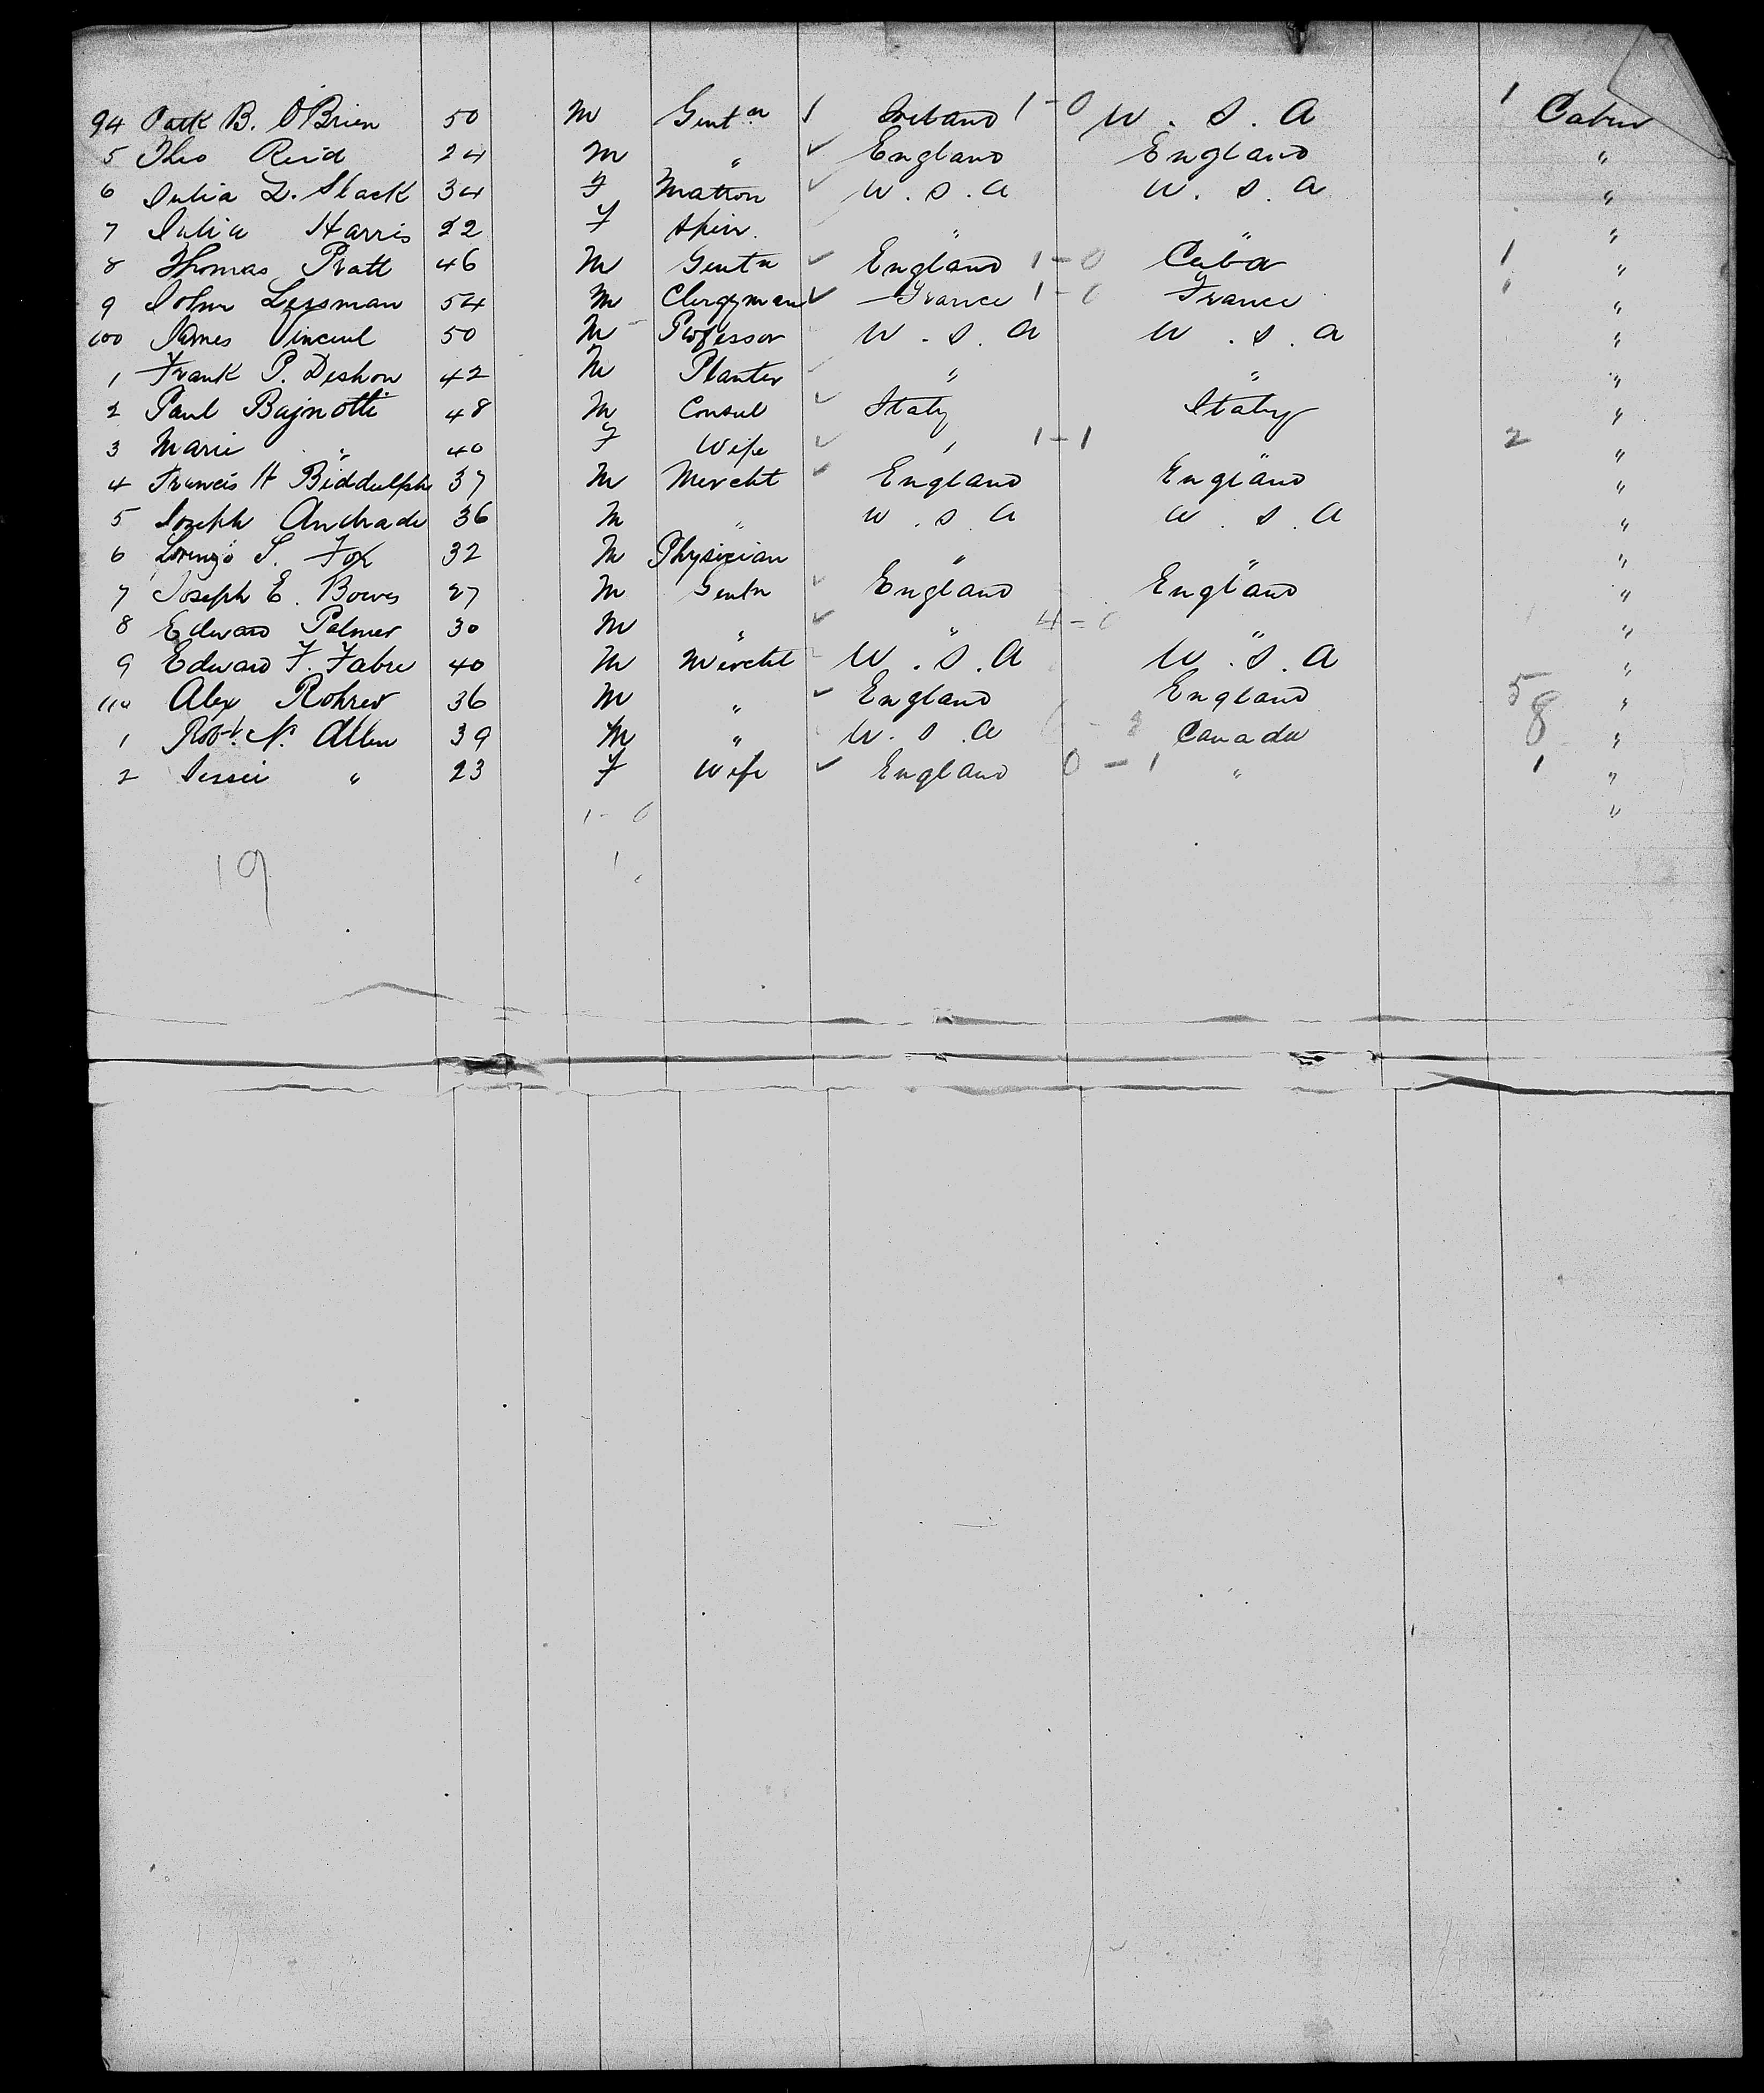 94 Patk B. O'Brien 50 M Gentn 1 Ireland 1-0 U. S. A 1 Cabin
5 Theo Reid 24 M " ✓ England England "
6 Julia L. Slack 34 F Matron ✓ U. S. A U. S. A "
7 Julia Harris 22 F Spin. " " "
8 Thomas Pratt 46 M Gentn ✓ England 1-0 Cuba 1 "
9 John Legsman 54 M Clergyman ✓ France 1-0 France 1 "
100 James Vincent 50 M Professor U. S. A U. S. A "
1 Frank P. Deshon 42 M Planter " " "
2 Paul Bajnotti 48 M Consul ✓ Italy Italy "
3 Marie " 40 F Wife ✓ " 1-1 " 2 "
4 Francis H Biddulph 37 M Mercht ✓ England England "
5 Joseph Andrade 36 M " U. S. A U. S. A "
6 Lorenzo S. Fox 32 M Physician " " "
7 Joseph E. Bowes 27 M Gentn ✓ England England "
8 Edward Palmer 30 M " ✓ " 4-0 " "
9 Edward F. Fabre 40 M Mercht U. S. A U. S. A "
110 Alex Rohrer 36 M " ✓ England England 5 "
1 Robt. N. Allen 39 M " U. S. A Canada 8 "
2 Jessie " 23 F Wife ✓ England 0-1 " 1 "
1-0 "
19 1